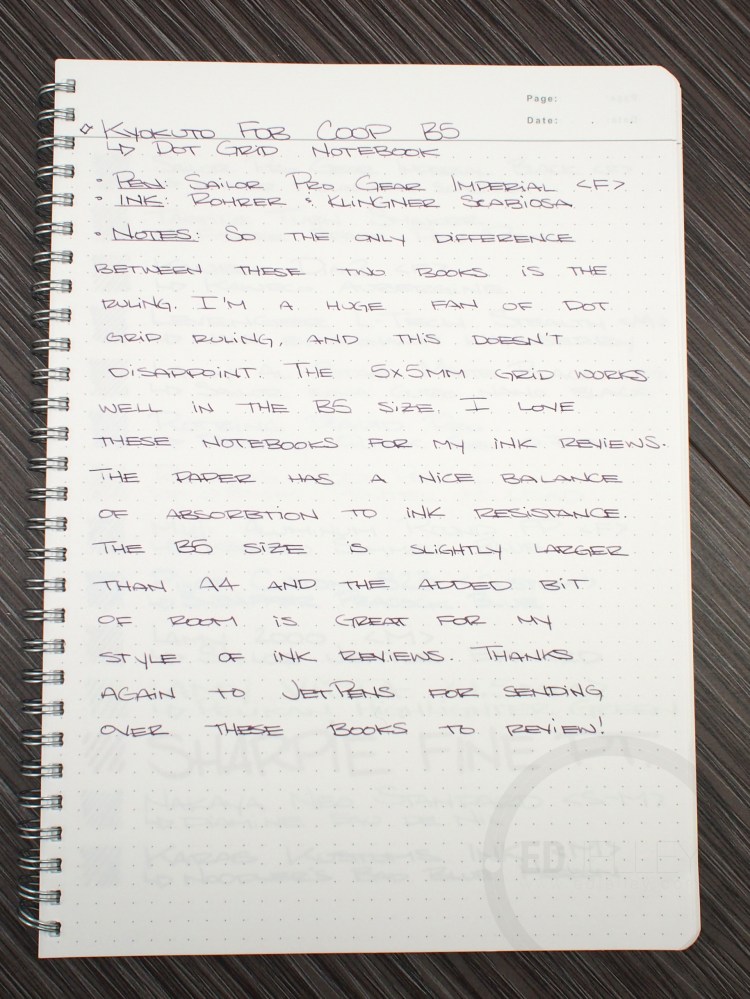 Page:
Date:
◇ Kyokuto FOB COOP B5
↳ Dot Grid Notebook
• Pen: Sailor Pro Gear Imperial <F>
• Ink: Rohrer & Klingner Scabiosa
• Notes: So the only difference
between these two books is the
ruling. I'm a huge fan of dot
grid ruling, and this doesn't
disappoint. The 5x5mm grid works
well in the B5 size. I love
these notebooks for my ink reviews.
The paper has a nice balance
of absorbtion to ink resistance.
The B5 size is slightly larger
than A4 and the added bit
of room is great for my
style of ink reviews. Thanks
again to JetPens for sending
over these books to review!
Sharpie Fine Pt